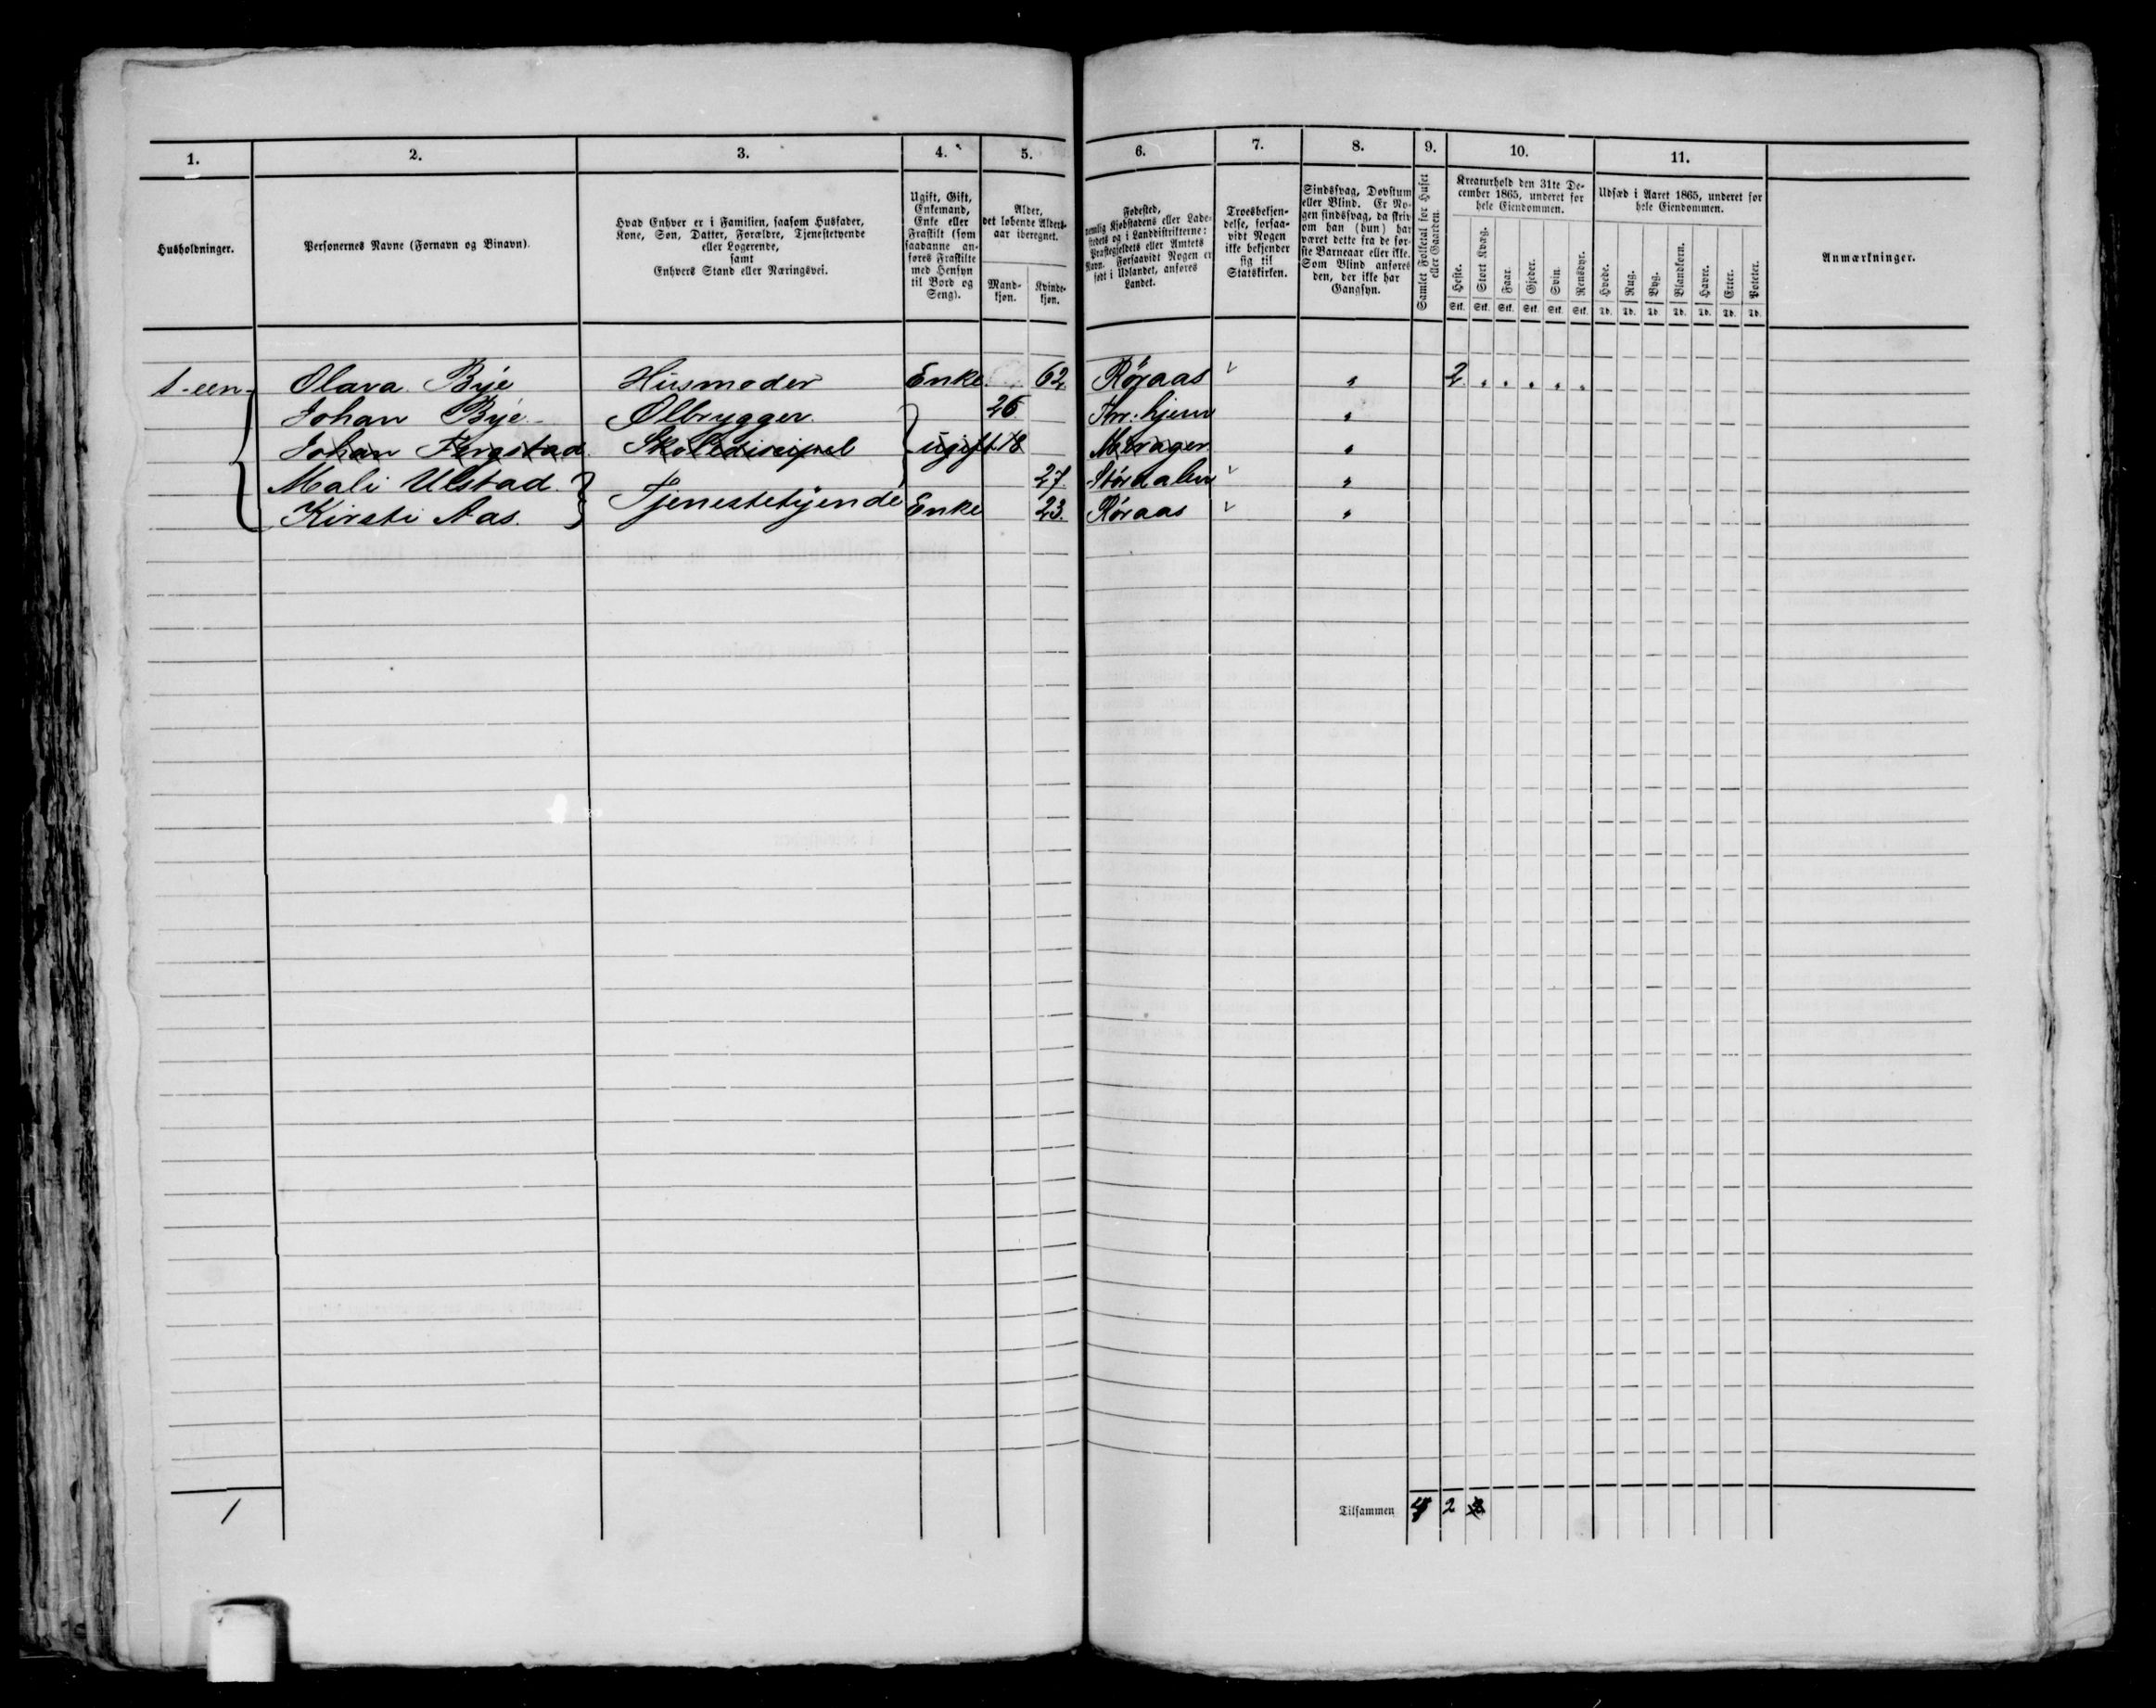 1. 2. 3. 4. 5. 6. 7. 8. 9. 10. 11.
Husholdninger.
Personernes Navne (Fornavn og Binavn).
Hvad Enhver er i Familien, saasom Husfader,
Kone, Søn, Datter, Forældre, Tjenestetyende
eller Logerende,
samt
Enhvers Stand eller Næringsvei.
Ugift, Gift,
Enkemand,
Enke eller
Fraskilt (som
saadanne an-
føres Fraskilte
med Hensyn
til Bord og
Seng).
Alder,
det løbende Alders-
aar iberegnet.
Mand-
kjøn.
Kvinde-
kjøn.
Fødested,
nemlig Kjøbstadens eller Lade-
stedets og i Landdistrikterne:
Præstegjeldets eller Amtets
Navn. Forsaavidt Nogen er
født i Udlandet, anføres
Landet.
Troesbekjen-
delse, forsaa-
vidt Nogen
ikke bekjender
sig til
Statskirken.
Sindssvag, Døvstum
eller Blind. Er No-
gen sindssvag, da skriv
om han (hun) har
været dette fra de før-
ste Barneaar eller ikke.
Som Blind anføres
den, der ikke har
Gangsyn.
Samlet Folketal for Huset
eller Gaarden.
Kreaturhold den 31te De-
cember 1865, underet for
hele Eiendommen.
Heste. Stort Kvæg. Faar. Gjeder. Svin. Rensdyr.
Stk. Stk. Stk. Stk. Stk. Stk.
Udsæd i Aaret 1865, underet for
hele Eiendommen.
Hvede. Rug. Byg. Blandkorn. Havre. Erter. Poteter.
Td. Td. Td. Td. Td. Td. Td.
Anmærkninger.
1-een- Olava Bye Husmoder Enke 62 Røraas 2
Johan Bye Ølbrygger 26 Thr:hjem
Johan Skolediscipel ugift 18 Merager
Mali Ulstad 27 Størdalen
Kirsti Aas. Tjenestetyende Enke 23. Røraas
1
Tilsammen 4 2